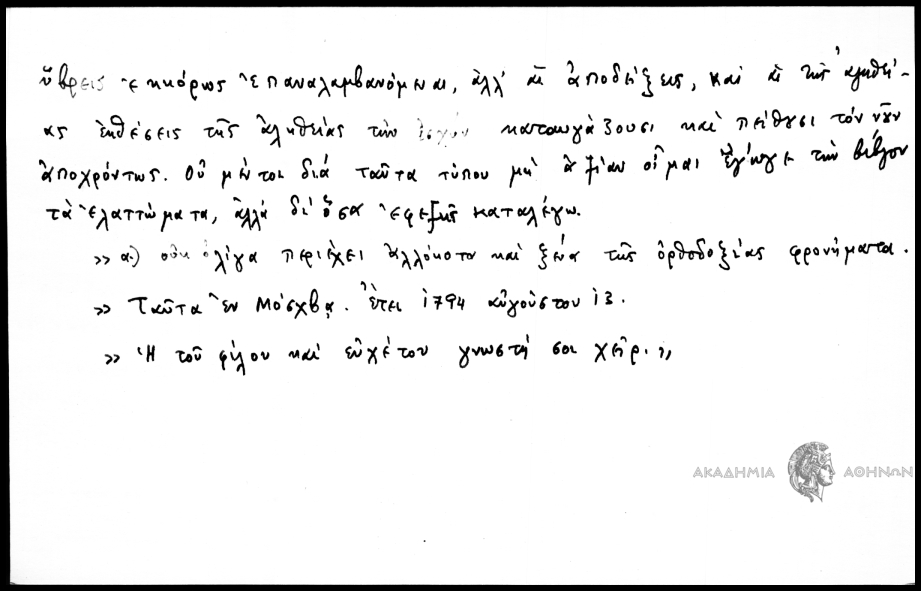 ὕβρεις ἐκκόρως ἐπαναλαμβανόμεναι, ἀλλ' αἱ ἀποδείξεις, καὶ αἱ τῆς ἀληθεί-
ας ἐκθέσεις τῆς ἀληθείας τὴν ἰσχὺν καταυγάζουσι καὶ πείθουσι τὸν νοῦν
ἀποχρόντως. Οὐ μέντοι διὰ ταῦτα τύπου μὴ ἀξίαν οἶμαι ἔγωγε τὴν βίβλον
τὰ ἐλαττώματα, ἀλλὰ δι' ὅσα ἐφεξῆς καταλέγω.
» α.) οὐκ ὀλίγα περιέχει ἀλλόκοτα καὶ ξένα τῆς ὀρθοδοξίας φρονήματα.
» Ταῦτα ἐν Μόσχβᾳ. Ἔτει 1794 αὐγούστου 13.
» Ἡ τοῦ φίλου καὶ εὐχέτου γνωστή σοι χεῖρ.»
ΑΚΑΔΗΜΙΑ ΑΘΗΝΩΝ